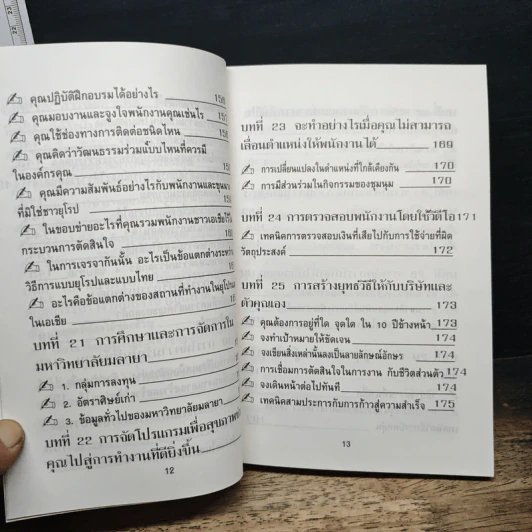 คุณปฏิบัติฝึกอบรมได้อย่างไร
คุณมอบงานและจูงใจพนักงานคุณเช่นไร
คุณใช้ช่องทางการติดต่อชนิดไหน
คุณคิดว่าวัฒนธรรมร่วมแบบไหนที่ควรมี
ในองค์กรคุณ
คุณมีความสัมพันธ์อย่างไรกับพนักงานและ
ที่มิใช่ชาวยุโรป
ในขอบข่ายอะไรที่คุณรวมพนักงานชาวเอเชียไว้
กระบวนการตัดสินใจ
ในการเจรจากันนั้น อะไรเป็นข้อแตกต่างระหว่าง
วิธีการแบบยุโรปและแบบไทย
อะไรคือข้อแตกต่างของสถานที่ทำงานในยุโรป
ในเอเชีย
บทที่ 21 การศึกษาและการจัดการใน
มหาวิทยาลัยมลายา
1. กลุ่มการลงทุน
2. อัตราศิษย์เก่า
3. ข้อมูลทั่วไปของมหาวิทยาลัยมลายา
บทที่ 22 การจัดโปรแกรมเพื่อสุขภาพ
คุณไปสู่การทำงานที่ดียิ่งขึ้น
12
บทที่ 23 จะทำอย่างไรเมื่อคุณไม่สามารถ
เลื่อนตำแหน่งให้พนักงานได้ 169
การเปลี่ยนแปลงในตำแหน่งที่ใกล้เคียงกัน 170
การมีส่วนร่วมในกิจกรรมของชุมนุม 170
บทที่ 24 การตรวจสอบพนักงานโดยใช้วีดีโอ 171
เทคนิคการตรวจสอบเงินที่เสียไปกับการใช้จ่ายที่ผิด
วัตถุประสงค์ 172
บทที่ 25 การสร้างยุทธวิธีให้กับบริษัทและ
ตัวคุณเอง 173
คุณต้องการอยู่ที่ใด จุดใด ใน 10 ปีข้างหน้า 173
จงทำเป้าหมายให้ชัดเจน 174
จงเขียนสิ่งเหล่านั้นลงเป็นลายลักษณ์อักษร 174
การเชื่อมการตัดสินใจในการงาน กับชีวิตส่วนตัว 174
จงเดินหน้าต่อไปทันที 174
เทคนิคสามประการกับการก้าวสู่ความสำเร็จ 175
13